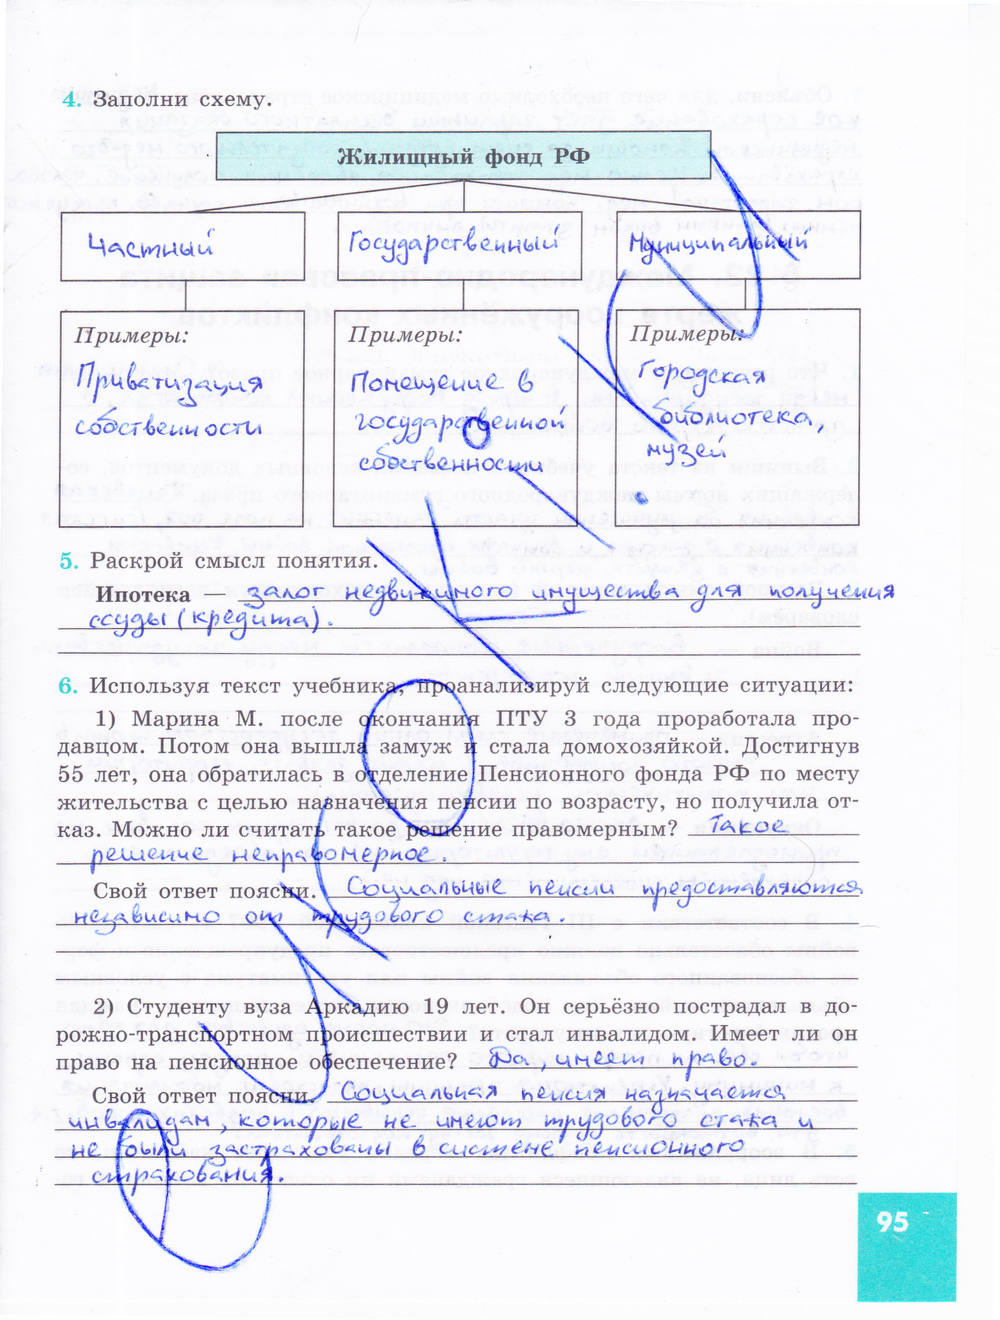 4. Заполни схему.
Жилищный фонд РФ
Частный
Государственный
Муниципальный
Примеры:
Приватизация
собственности
Примеры:
Помещение в
государственной
собственности
Примеры:
Городская
библиотека,
музей
5. Раскрой смысл понятия.
Ипотека — залог недвижимого имущества для получения
ссуды (кредита).
6. Используя текст учебника, проанализируй следующие ситуации:
1) Марина М. после окончания ПТУ 3 года проработала про-
давцом. Потом она вышла замуж и стала домохозяйкой. Достигнув
55 лет, она обратилась в отделение Пенсионного фонда РФ по месту
жительства с целью назначения пенсии по возрасту, но получила от-
каз. Можно ли считать такое решение правомерным? Такое
решение неправомерное.
Свой ответ поясни. Социальные пенсии предоставляются
независимо от трудового стажа.
2) Студенту вуза Аркадию 19 лет. Он серьёзно пострадал в до-
рожно-транспортном происшествии и стал инвалидом. Имеет ли он
право на пенсионное обеспечение? Да, имеет право.
Свой ответ поясни. Социальная пенсия назначается
инвалидам, которые не имеют трудового стажа и
не были застрахованы в системе пенсионного
страхования.
95